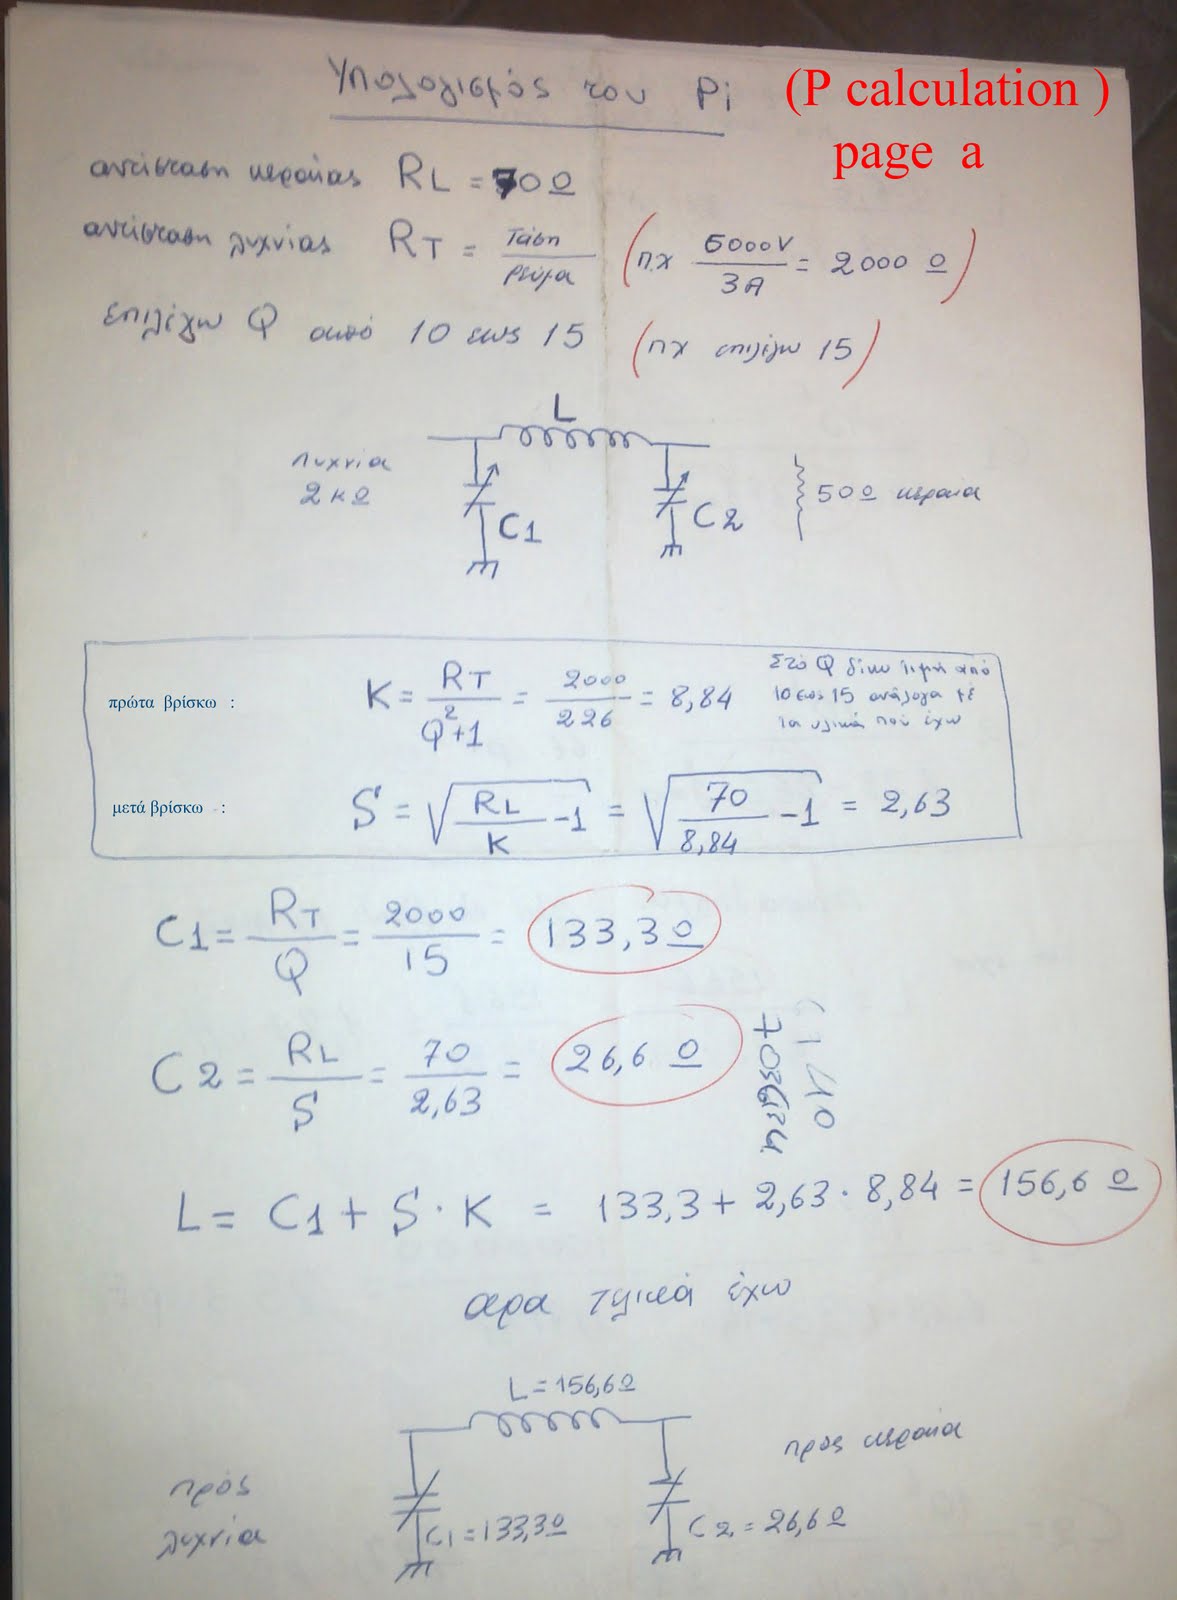 Υπολογισμός του Pi (P calculation )
page a
αντίσταση κεραίας RL = 70 Ω
αντίσταση λυχνίας RT = Τάση / ρεύμα (πχ 6000V / 3A = 2000 Ω)
επιλέγω Q από 10 εως 15 (πχ επιλέγω 15)
L
λυχνία
2 κΩ
C1
C2
50Ω κεραία
πρώτα βρίσκω : K = RT / Q²+1 = 2000 / 226 = 8,84
Στο Q δίνω τιμή από
10 εως 15 ανάλογα με
τα υλικά που έχω
μετά βρίσκω : S = √(RL / K - 1) = √(70 / 8,84 - 1) = 2,63
C1 = RT / Q = 2000 / 15 = 133,3 Ω
C2 = RL / S = 70 / 2,63 = 26,6 Ω
L = C1 + S · K = 133,3 + 2,63 · 8,84 = 156,6 Ω
αρα τελικά έχω
L = 156,6 Ω
προς κεραία
προς
λυχνία
C1 = 133,3Ω
C2 = 26,6 Ω